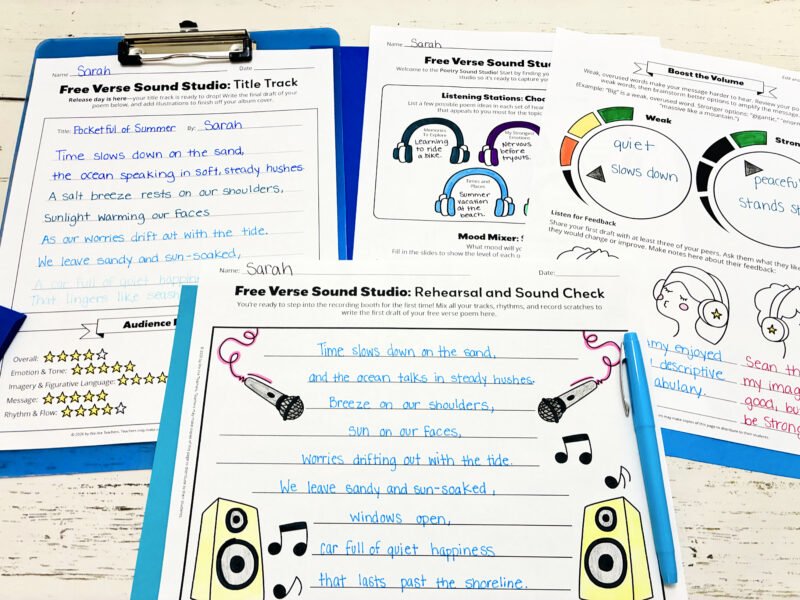 Name Sarah Date
Free Verse Sound Studio: Title Track
Release day is here—your title track is ready to drop! Write the final draft of your
poem below, and add illustrations to finish off your album cover.
Title: Pocketful of Summer By: Sarah
Time slows down on the sand,
the ocean speaking in soft, steady hushes.
A salt breeze rests on our shoulders,
Sunlight warming our faces
As our worries drift out with the tide.
We leave sandy and sun-soaked,
A car full of quiet happin
That lingers like seash
Audience
Overall:
Emotion & Tone:
Imagery & Figurative Language:
Message:
Rhythm & Flow:
Name Sarah
Free Verse Sound
Welcome to the Poetry Sound Studio! Start by finding
studio so it's ready to capture your
Listening Stations: Choo
List a few possible poem ideas in each set of hear
that appeals to you most for the topic
Memories
To Explore
Learning
to ride
a bike.
My Strongest
Emotions
Nervous
before
tryouts.
Times and
Places
Summer
vacation
at the
beach.
Mood Mixer:
What mood will yo
Fill in the slides to show the level of each o
Boost the Volume
Weak, overused words make your message harder to hear. Review your po
weak words, then brainstorm better options to amplify the message
(Example: "Big" is a weak, overused word. Stronger options: "gigantic," "enorm
"massive like a mountain.")
Weak
quiet
slows down
Stron
peaceful
stands st
Listen for Feedback
Share your first draft with at least three of your peers. Ask them what they like
they would change or improve. Make notes here about their feedback:
my enjoyed
descriptive
abulary.
Sean th
my imag
good, bu
be Strong
Name: Sarah Date:
Free Verse Sound Studio: Rehearsal and Sound Check
You're ready to step into the recording booth for the first time! Mix all your tracks, rhythms, and record scratches to
write the first draft of your free verse poem here.
Time slows down on the sand,
and the ocean talks in steady hushes.
Breeze on our shoulders,
sun on our faces,
Worries drifting out with the tide.
We leave sandy and sun-soaked,
windows open,
car full of quiet happiness
that lasts past the shoreline.